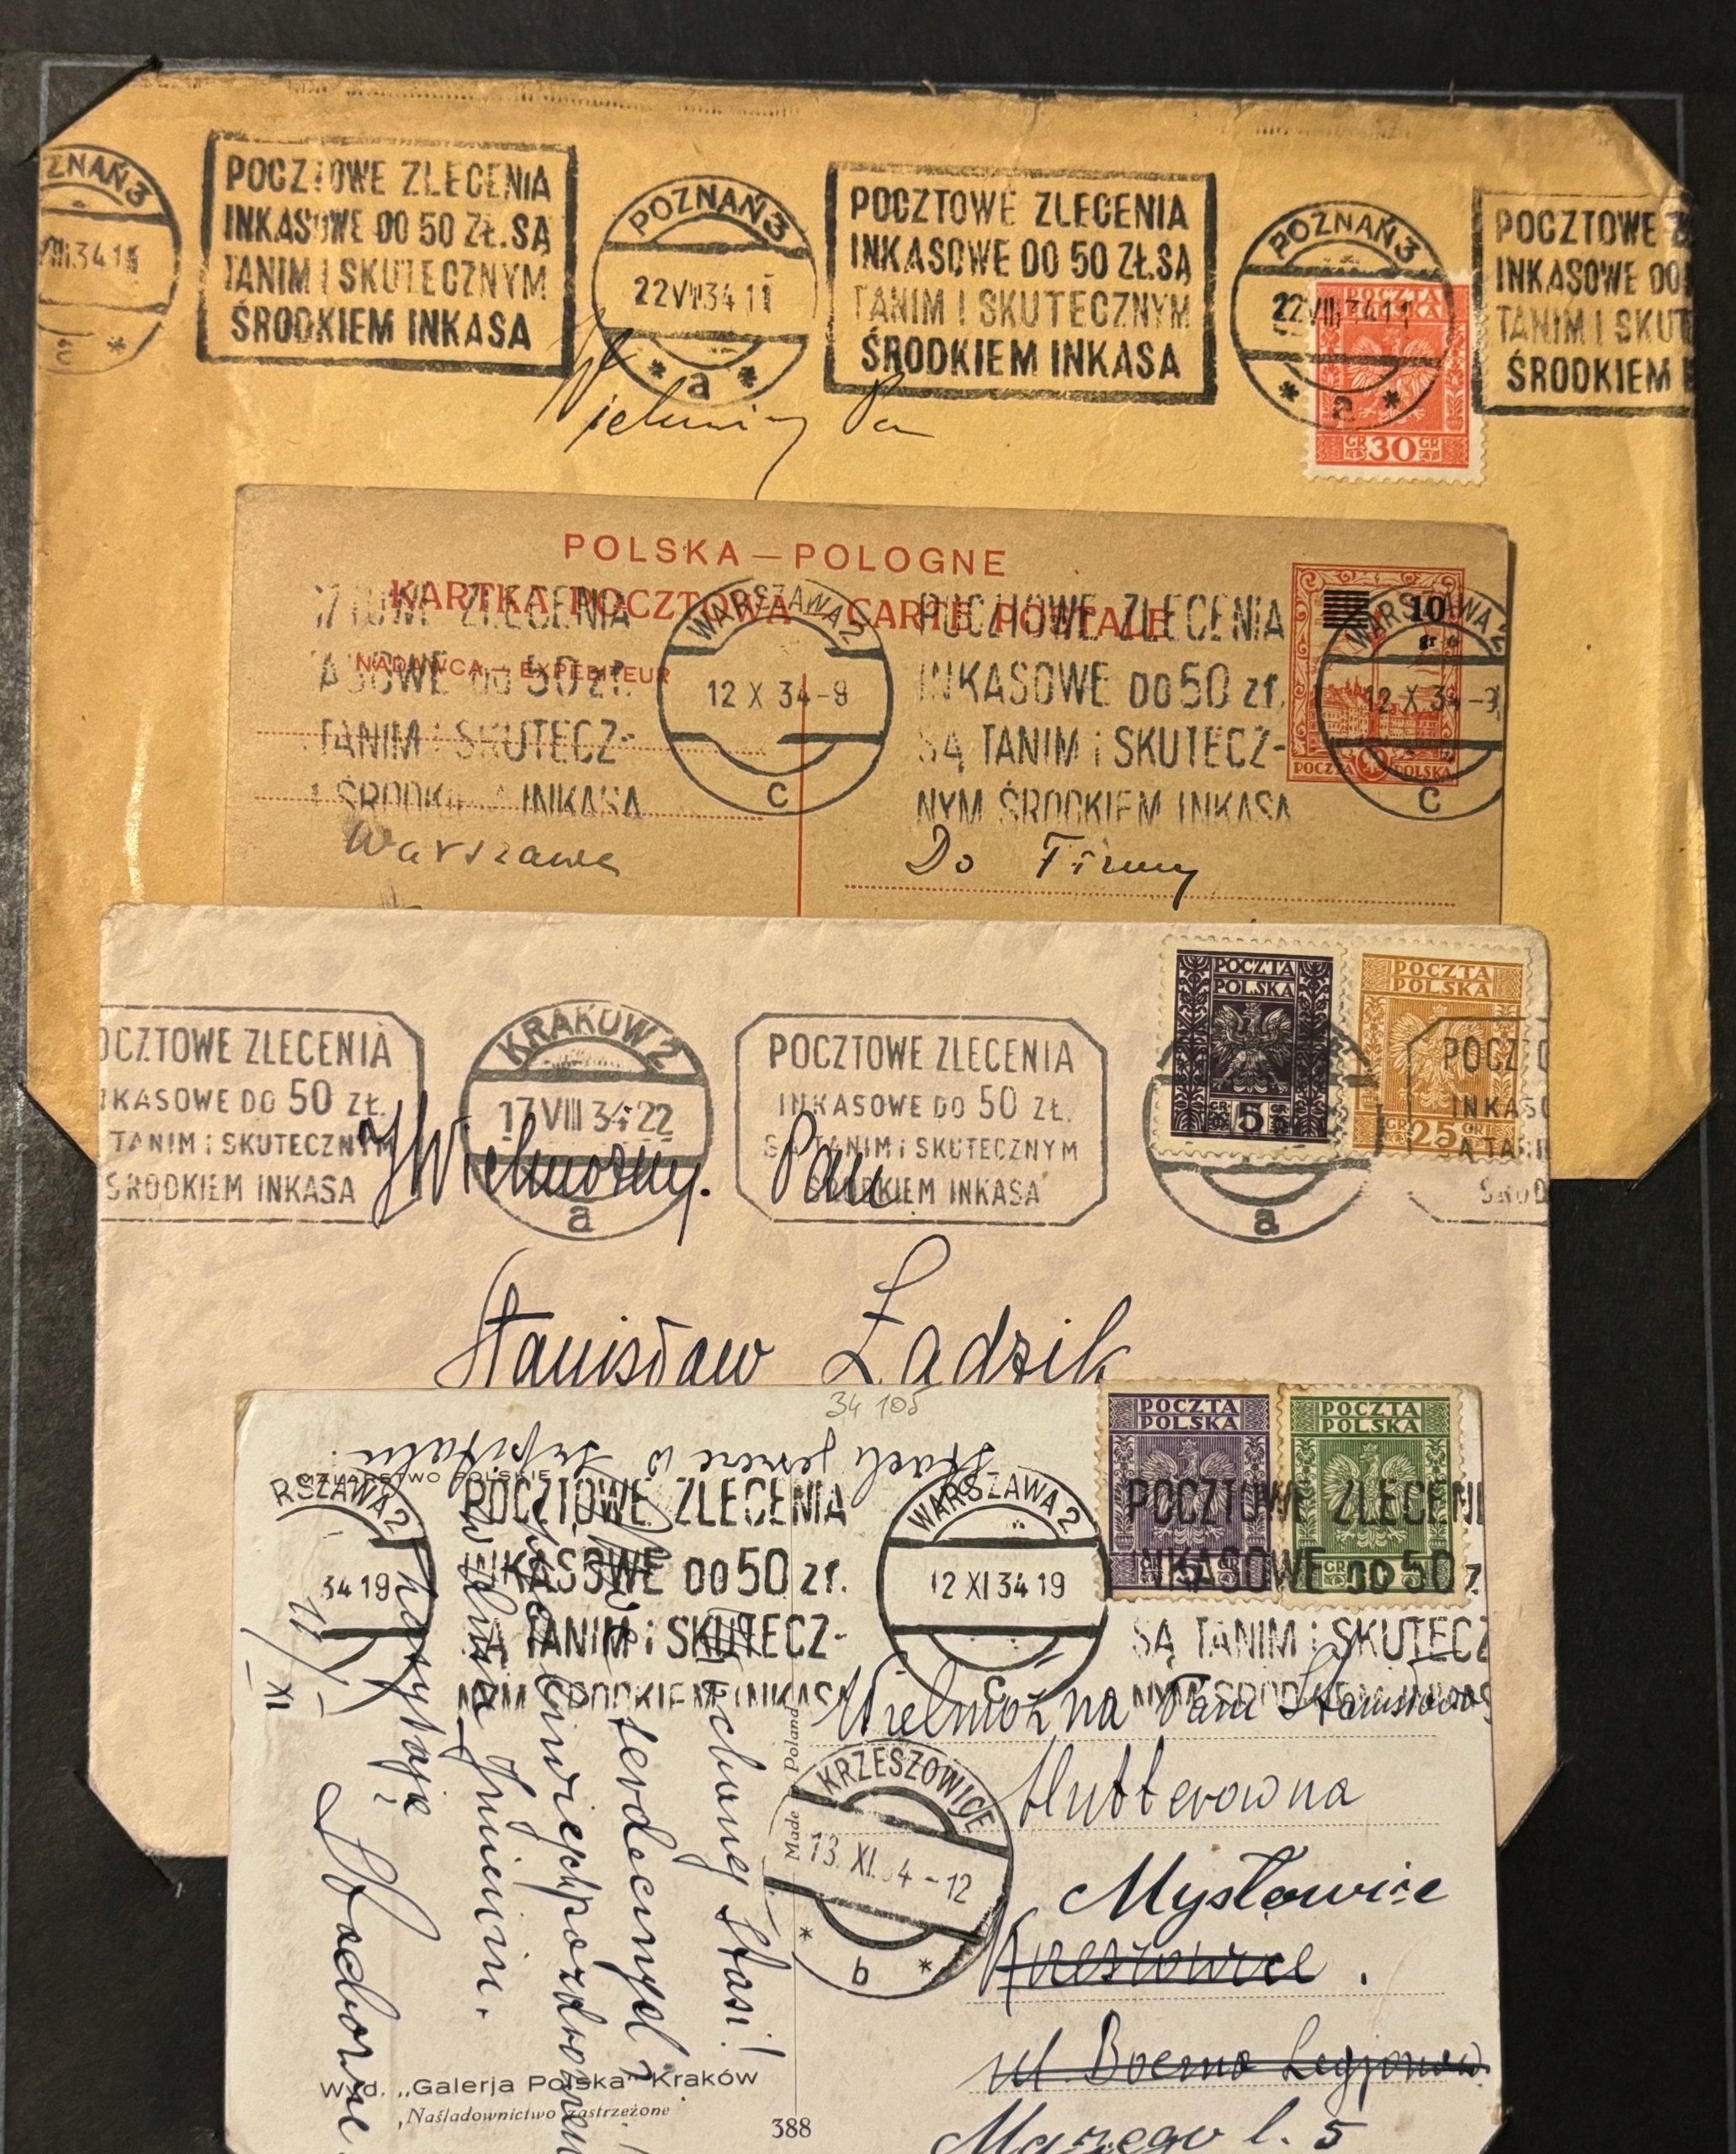 ZNAŃ 3
VIII.34 11
a *
POCZTOWE ZLECENIA
INKASOWE DO 50 ZŁ. SĄ
TANIM I SKUTECZNYM
ŚRODKIEM INKASA
POZNAŃ 3
22 VIII 34 11
* a *
POCZTOWE ZLECENIA
INKASOWE DO 50 ZŁ. SĄ
TANIM I SKUTECZNYM
ŚRODKIEM INKASA
POZNAŃ 3
22 VIII 34 11
* a *
POCZTA
POLSKA
GR 30 GR
POCZTOWE Z
INKASOWE DO
TANIM I SKUT
ŚRODKIEM
Wielmożny Pan
POLSKA — POLOGNE
KARTKA POCZTOWA CARTE POSTALE
NADAWCA — EXPÉDITEUR
ZTOWE ZLECENIA
ASOWE DO 50 zł.
TANIM i SKUTECZ-
ŚRODKIEM INKASA
WARSZAWA 2
12 X 34-9
C
POCZTOWE ZLECENIA
INKASOWE DO 50 zł.
SĄ TANIM i SKUTECZ-
NYM ŚRODKIEM INKASA
10
gr
POCZTA POLSKA
WARSZAWA 2
12 X 34-9
C
Warszawa
Do Firmy
OCZTOWE ZLECENIA
NKASOWE DO 50 ZŁ.
TANIM i SKUTECZNYM
ŚRODKIEM INKASA
KRAKÓW 2
17 VIII 34 22
a
POCZTOWE ZLECENIA
INKASOWE DO 50 ZŁ.
SĄ TANIM i SKUTECZNYM
ŚRODKIEM INKASA
POCZTA
POLSKA
GR 5 GR
POCZTA
POLSKA
GR 25 GR
a
POCZTO
INKASO
SĄ TANI
ŚROD
JWielmożny. Pan
Stanisław Ładzik
34 105
MALARSTWO POLSKIE
RSZAWA 2
34 19
POCZTOWE ZLECENIA
INKASOWE DO 50 zł.
SĄ TANIM i SKUTECZ-
NYM ŚRODKIEM INKASA
WARSZAWA 2
12 XI 34 19
C
POCZTA
POLSKA
POCZTA
POLSKA
POCZTOWE ZLECENI
INKASOWE DO 50 z
SĄ TANIM i SKUTECZ
NYM ŚRODKIEM INKAS
11/XI
Kochanej Stasi!
serdecznych
imienin.
Wielmożna Pani Stanisława
Hutterówna
Mysłowice
Krzeszowice.
ul.
l. 5
KRZESZOWICE
13. XI. 34 - 12
* b *
Made Poland
Wyd. „Galerja Polska" Kraków
Naśladownictwo zastrzeżone
388